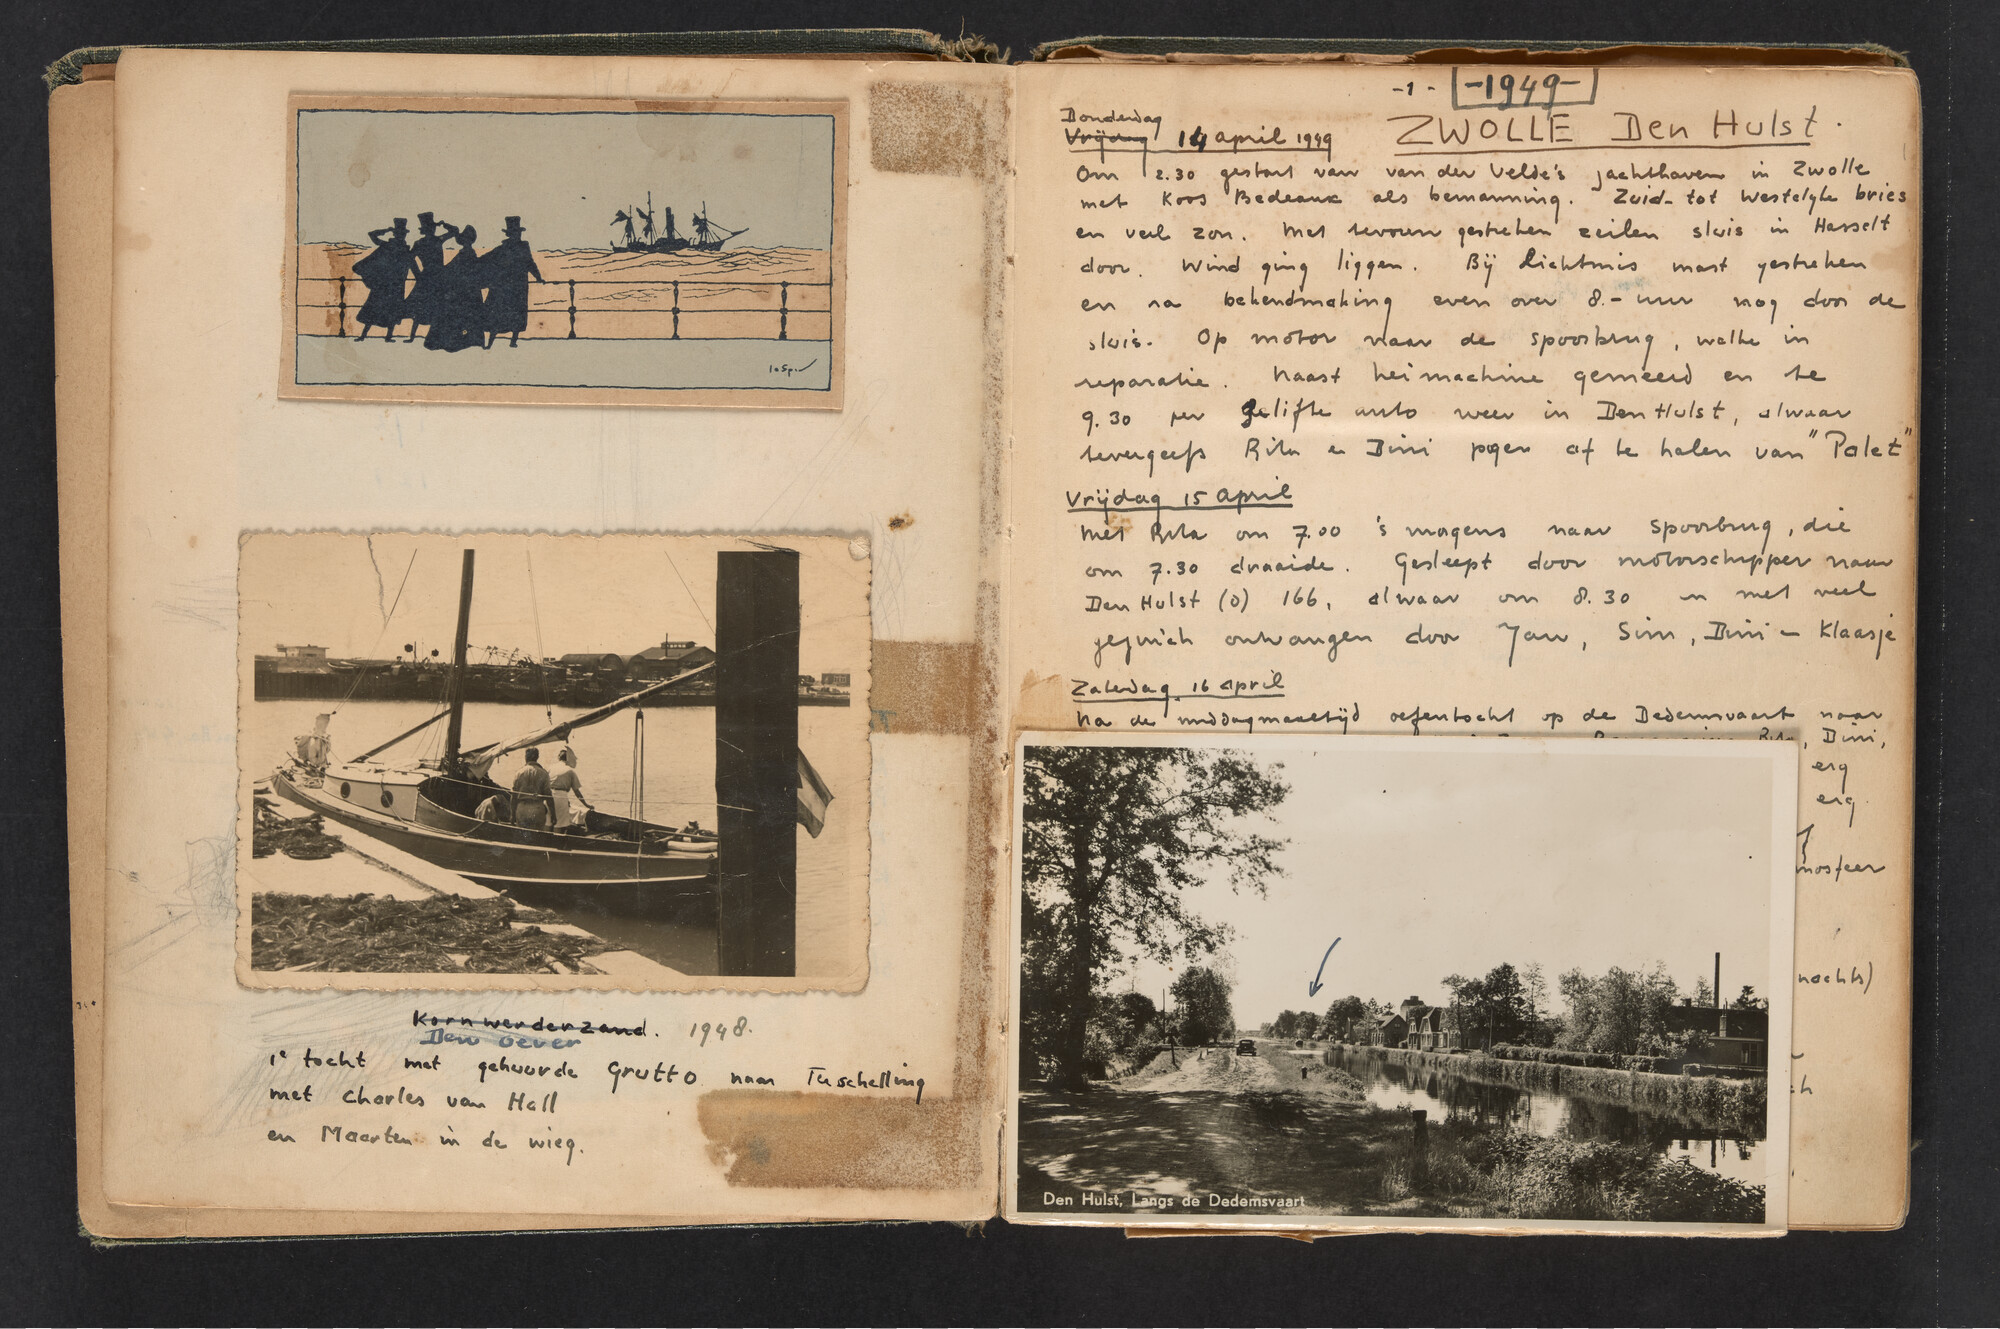 Jo Spier
Kornwerderzand. 1948.
Den oever
1e tocht met gehuurde Grutto naar Terschelling
met Charles van Hall
en Maarten in de wieg.
-1- -1949-
Donderdag
Vrijdag 14 april 1949 ZWOLLE Den Hulst.
Om 2.30 gestart van van der Velde's jachthaven in Zwolle
met Koos Bedeaux als bemanning. Zuid- tot Westelyke bries
en veel zon. Met tevoren gestreken zeilen sluis in Hasselt
door. Wind ging liggen. Bij Lichtmis mast gestreken
en na bekendmaking even over 8.- uur nog door de
sluis. Op motor naar de spoorbrug, welke in
reparatie. Naast heimachine gemeerd en te
9.30 per gelifte auto weer in Den Hulst, alwaar
tevergeefs Rita en Dini pogen af te halen van "Palet"
Vrijdag 15 april
Met Rita om 7.00 's morgens naar spoorbrug, die
om 7.30 draaide. Gesleept door motorschipper naar
Den Hulst (O) 166, alwaar om 8.30 en met veel
gejuich ontvangen door Jan, Sim, Dini en Klaasje
Zaterdag 16 april
Na de middagmaaltijd oefentocht op de Dedemsvaart naar
Rita, Dini,
erg
erg
mosfeer
nachts)
ch
Den Hulst, Langs de Dedemsvaart